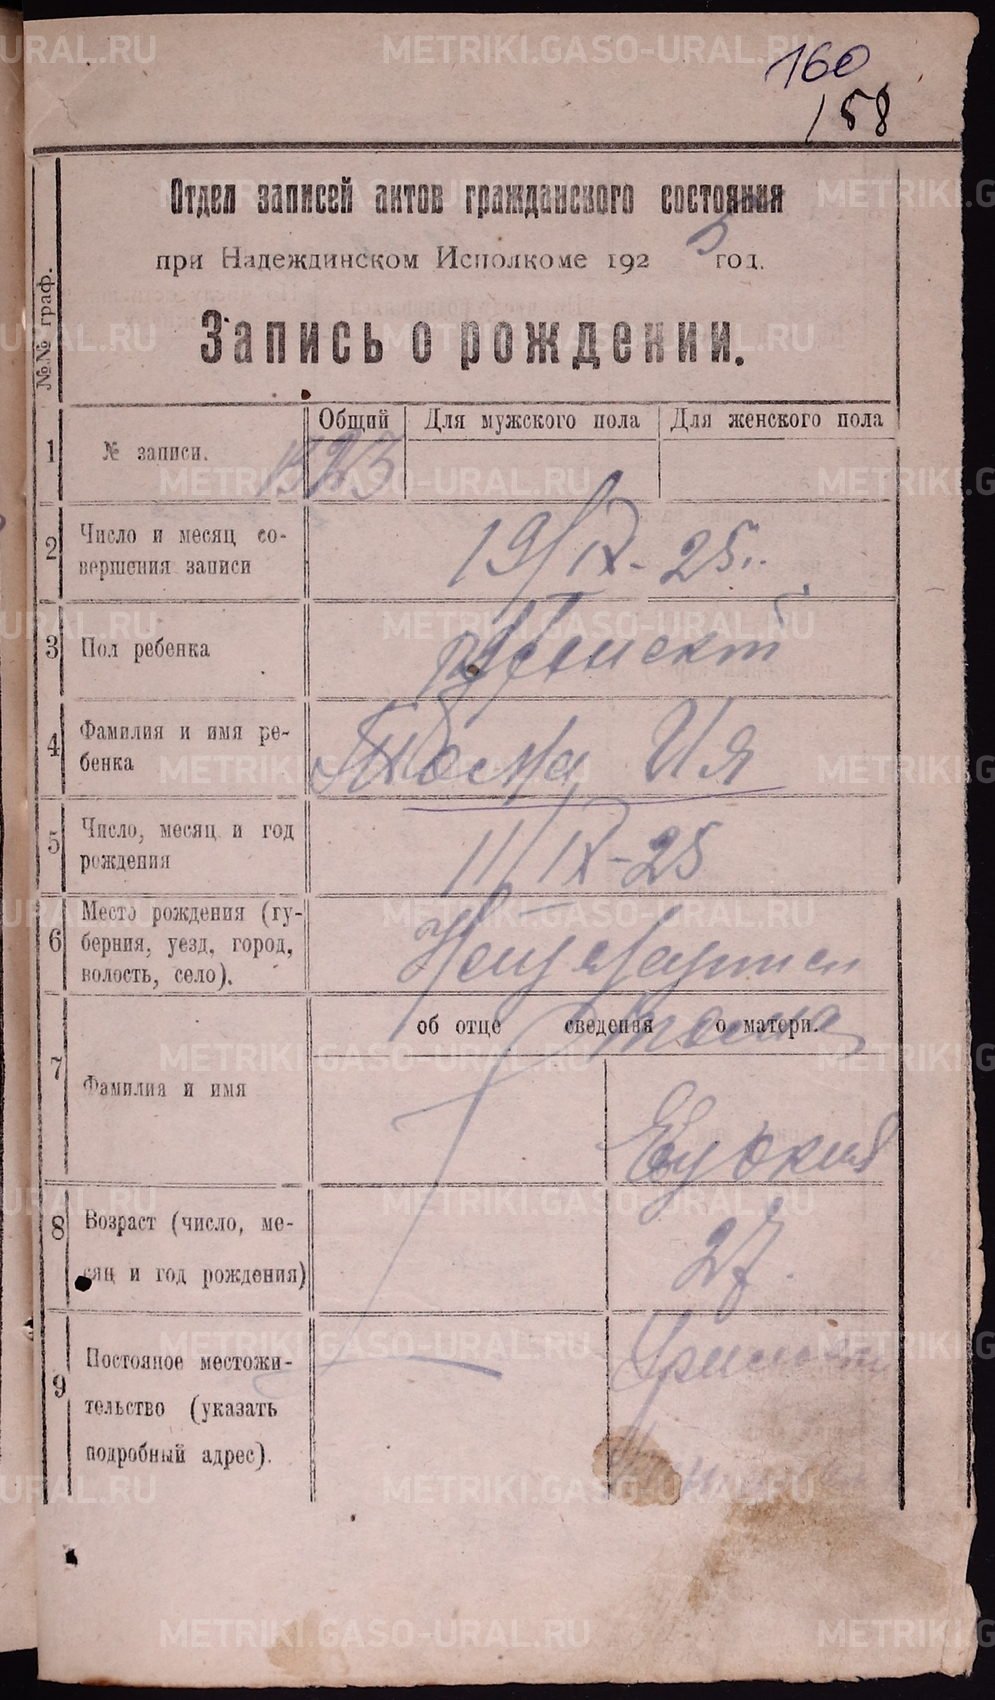 160
158
Отдел записей актов гражданского состояния
при Надеждинском Исполкоме 192 5 год.
Запись о рождении.
№№ граф.
Общий Для мужского пола Для женского пола
1 № записи. 1523
2 Число и месяц со-
вершения записи
19/IX - 25 г.
3 Пол ребенка
4 Фамилия и имя ре-
бенка
Ия
5 Число, месяц и год
рождения
11/IX - 25
6 Место рождения (гу-
берния, уезд, город,
волость, село).
об отце сведения о матери.
7 Фамилия и имя
8 Возраст (число, ме-
сяц и год рождения)
27.
9 Постояное местожи-
тельство (указать
подробный адрес).
METRIKI.GASO-URAL.RU